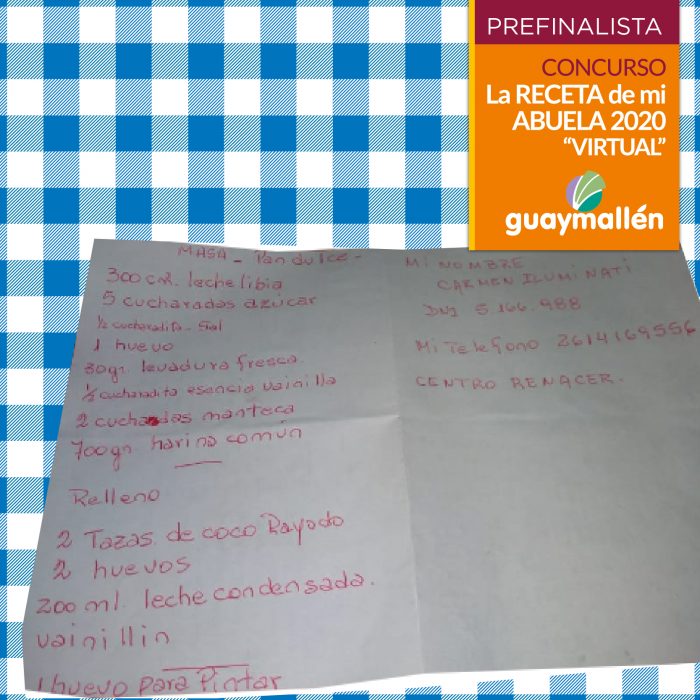 PREFINALISTA
CONCURSO
La RECETA de mi
ABUELA 2020
“VIRTUAL”
guaymallén
MASA - Pan dulce -
300 cm. leche libia
5 cucharadas azúcar
1/2 cucharadita - Sal
1 huevo
30gr. levadura fresca.
1/2 cucharadita esencia vainilla
2 cucharadas manteca
700gr harina común
Relleno
2 Tazas de coco Rayado
2 huevos
200 ml. leche condensada.
vainillin
1 huevo para Pintar
Mi NOMBRE
CARMEN ILUMINATI
DNI 5.166.988
Mi Telefono 2614169556
CENTRO RENACER.